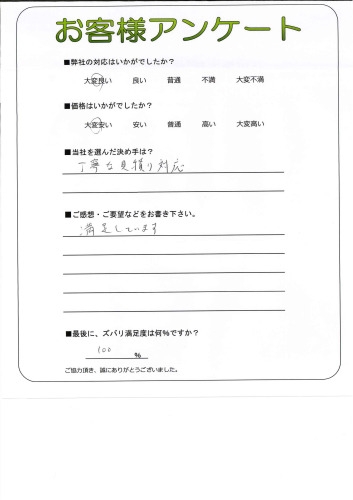 お客様アンケート
■弊社の対応はいかがでしたか?
大変良い 良い 普通 不満 大変不満
■価格はいかがでしたか?
大変安い 安い 普通 高い 大変高い
■当社を選んだ決め手は?
丁寧な見積り対応
■ご感想・ご要望などをお書き下さい。
満足しています
■最後に、ズバリ満足度は何%ですか?
100 %
ご協力頂き、誠にありがとうございました。